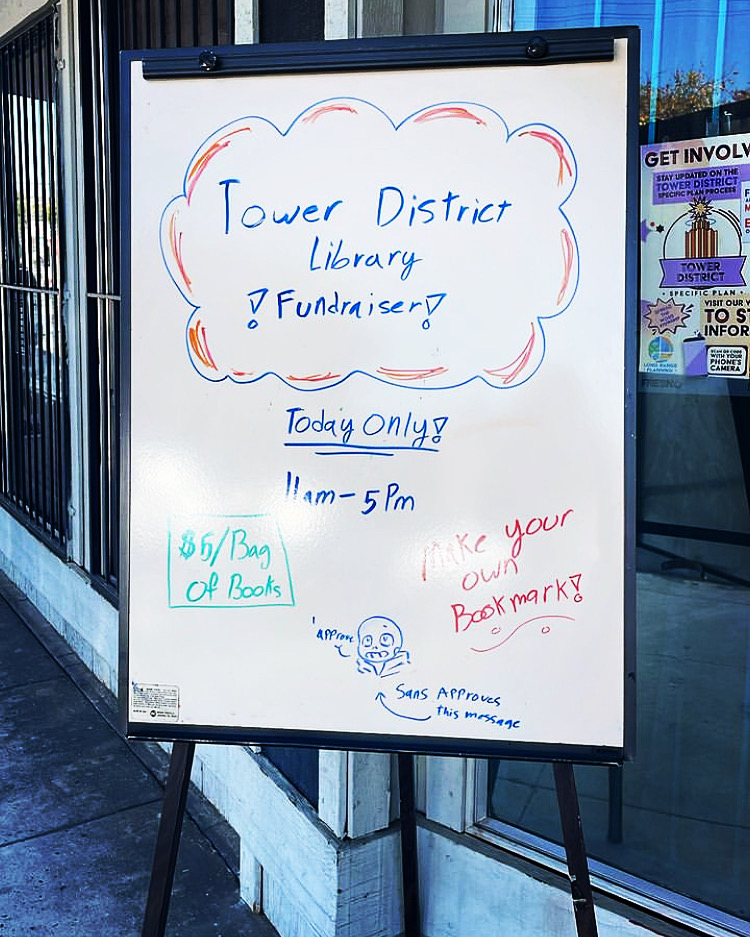 Tower District
Library
!Fundraiser!
Today Only!
11am - 5pm
$5/Bag
of Books
Make your
own
Bookmark!
'approve
Sans Approves
this message
GET INVOLV
STAY UPDATED ON THE
TOWER DISTRICT
SPECIFIC PLAN PROCESS
TOWER
DISTRICT
• SPECIFIC PLAN •
VISIT OUR W
TO ST
INFOR
SCAN QR CODE
WITH YOUR
PHONE'S
CAMERA
LONG RANGE
PLANNING
FRESNO